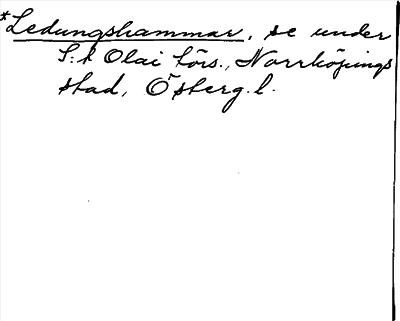 *Ledungshammar, se under
S:t Olai förs., Norrköpings
stad, Österg. l.